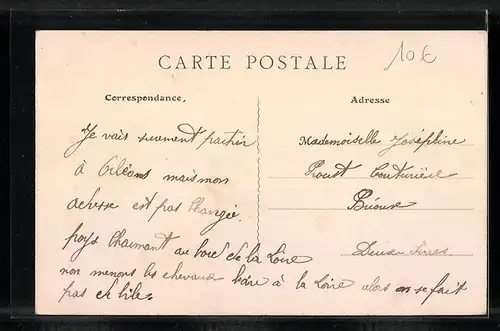 CARTE POSTALE
10€
Correspondance,
Adresse
Je vais surement partir
à Orléans mais mon
adresse est pas Changée
pays Charmant au bord de la Loire
non menons les chevaux boire à la Loire alors on se fait
pas de bile.
Mademoiselle Joséphine
Proust Couturière
Prioux
Deux-Sèvres